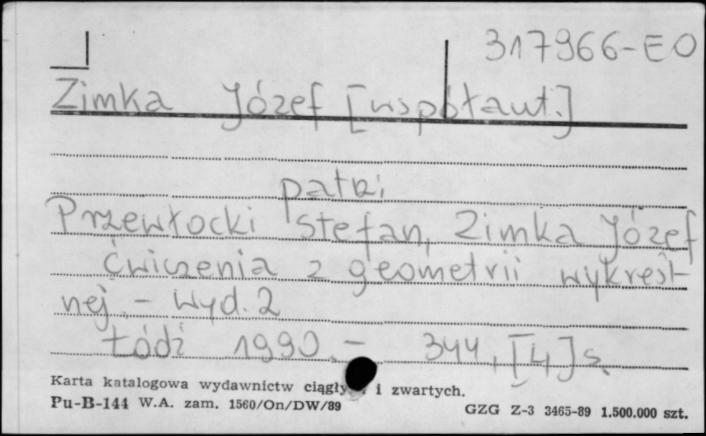 317966-EO
Zimka Józef [współaut.]
patrz:
Przewłocki Stefan, Zimka Józef
Ćwiczenia z geometrii wykreśl-
nej. - Wyd. 2
Łódź 1990. - 344, [4] s.
Karta katalogowa wydawnictw i zwartych.
Pu-B-144 W.A. zam. 1560/On/DW/89
GZG Z-3 3465-89 1.500.000 szt.